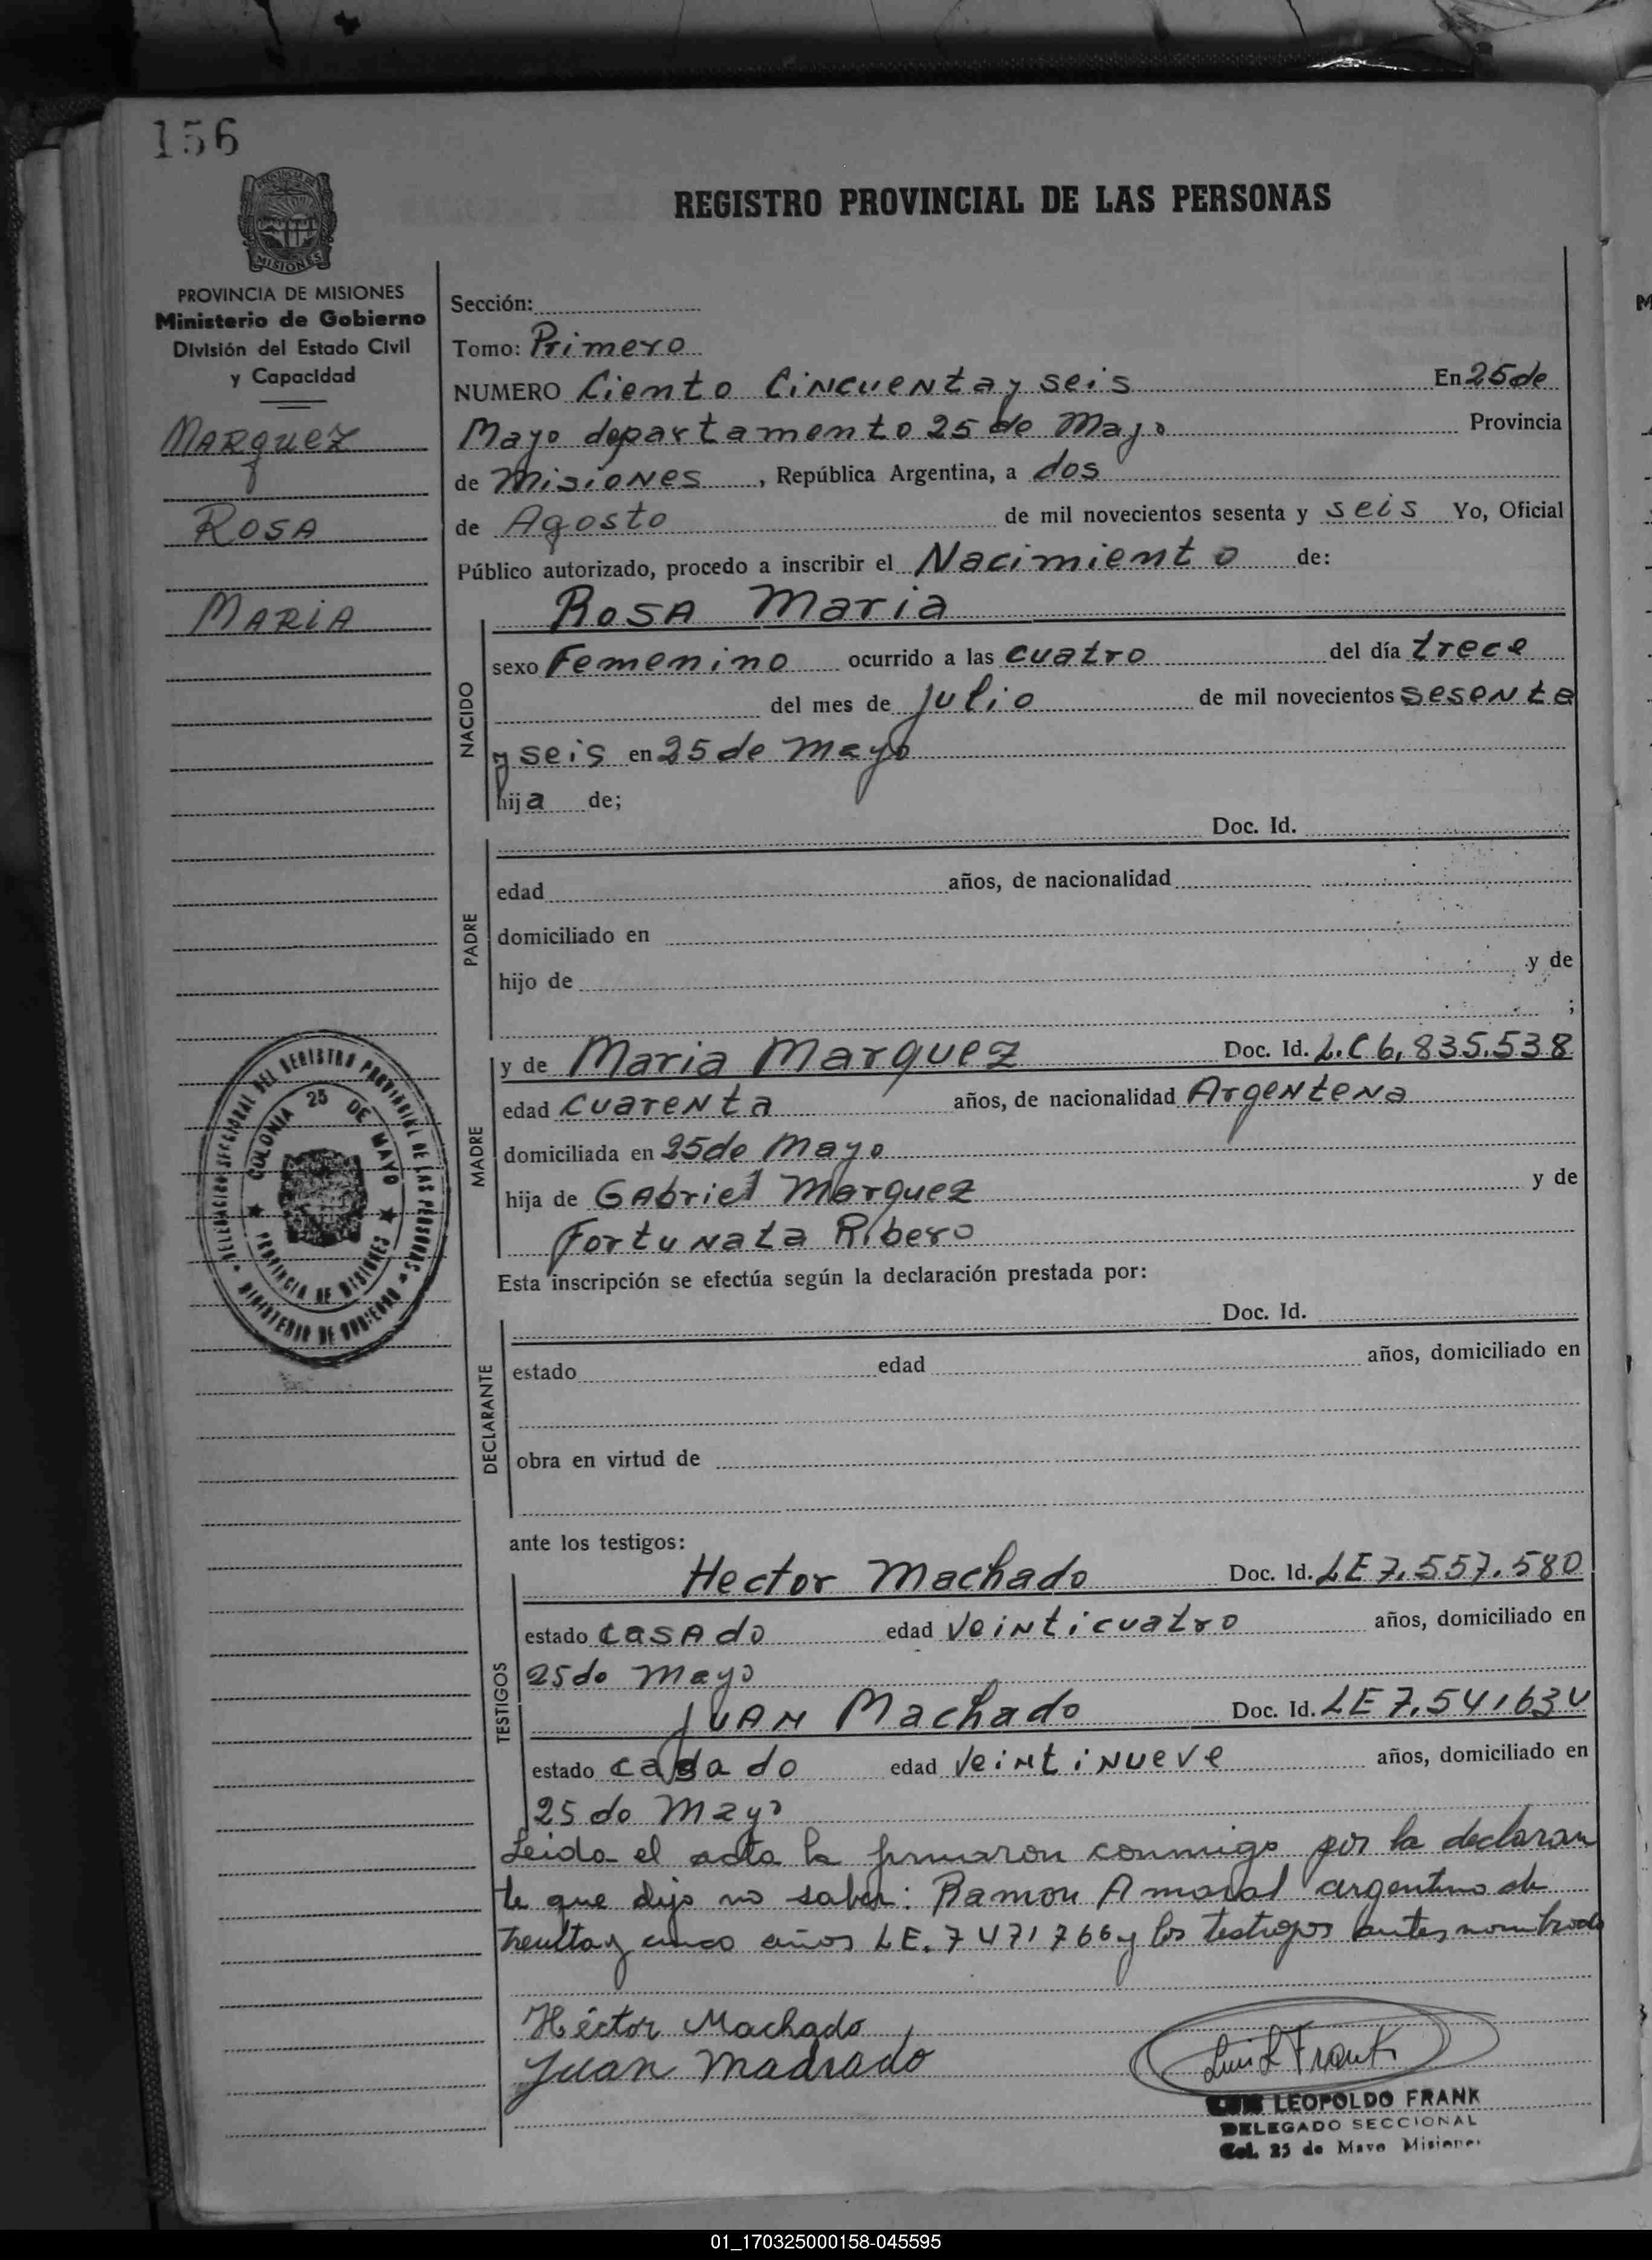 156
REGISTRO PROVINCIAL DE LAS PERSONAS
MISIONES
PROVINCIA DE MISIONES
Ministerio de Gobierno
División del Estado Civil
y Capacidad
MARQUEZ
ROSA
MARIA
Sección:
Tomo: Primero
NUMERO Ciento Cincuenta y seis En 25 de
Mayo departamento 25 de Mayo Provincia
de Misiones, República Argentina, a dos
de Agosto de mil novecientos sesenta y seis Yo, Oficial
Público autorizado, procedo a inscribir el Nacimiento de:
NACIDO
Rosa Maria
sexo Femenino ocurrido a las cuatro del día trece
del mes de julio de mil novecientos sesenta
y seis en 25 de Mayo
hija de;
PADRE
Doc. Id.
edad años, de nacionalidad
domiciliado en
hijo de y de
;
MADRE
y de Maria Marquez Doc. Id. L.C 6,835.538
edad cuarenta años, de nacionalidad Argentena
domiciliada en 25 de Mayo
hija de Gabriel Marquez y de
Fortunata Ribero
DELEGACION SECCIONAL DEL REGISTRO PROVINCIAL DE LAS PERSONAS
MINISTERIO DE GOBIERNO
COLONIA 25 DE MAYO
PROVINCIA DE MISIONES
Esta inscripción se efectúa según la declaración prestada por:
DECLARANTE
Doc. Id.
estado edad años, domiciliado en
obra en virtud de
ante los testigos:
TESTIGOS
Hector Machado Doc. Id. LE 7.557.580
estado casado edad veinticuatro años, domiciliado en
25 de Mayo
Juan Machado Doc. Id. LE 7.541634
estado casado edad veintinueve años, domiciliado en
25 de Mayo
Leida el acta la firmaron conmigo por la declaran
te que dijo no saber: Ramon Amaral argentino de
treinta y cinco años LE. 7471766 y los testigos antes nombrado
Héctor Machado
Juan Machado
Luis L Frank
LUIS LEOPOLDO FRANK
DELEGADO SECCIONAL
Col. 25 de Mayo Misiones
01_170325000158-045595